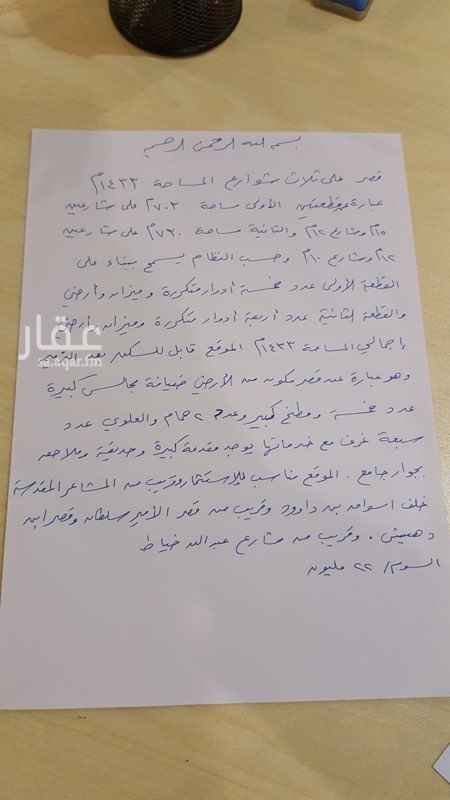 بسم الله الرحمن الرحيم
قصر على ثلاث شوارع المساحة ١٤٣٣م
عبارة وقطعتين الأولى مساحة ٧٠٣م على شارعين
١٥م وشارع ١٢م والثانية مساحة ٧٣٠م على شارعين
١٢م وشارع ١٠م وحسب النظام يسمح ببناء على
القطعة الأولى عدد خمسة أدوار متكررة وميزان وأرضي
والقطعة الثانية عدد أربعة أدوار متكررة وميزان أرضي
إجمالي المساحة ١٤٣٣م الموقع قابل للسكن بعد الترميم
وهو عبارة عن قصر مكون من الأرضي ضيافة مجالس كبيرة
عدد خمسة ومطبخ كبير وعدد ٢ حمام والعلوي عدد
سبعة غرف مع خدماتها يوجد مقدمة كبيرة وحديقة وملاحق
بجوار جامع . الموقع مناسب للإستثمار وقريب من المشاعر المقدسة
خلف اسواق بن داوود وقريب من قصر الأمير سلطان وقصر ابن
دهيش . وقريب من شارع عبدالله خياط
السوم / ٢٢ مليون
عقار
sa.aqar.fm